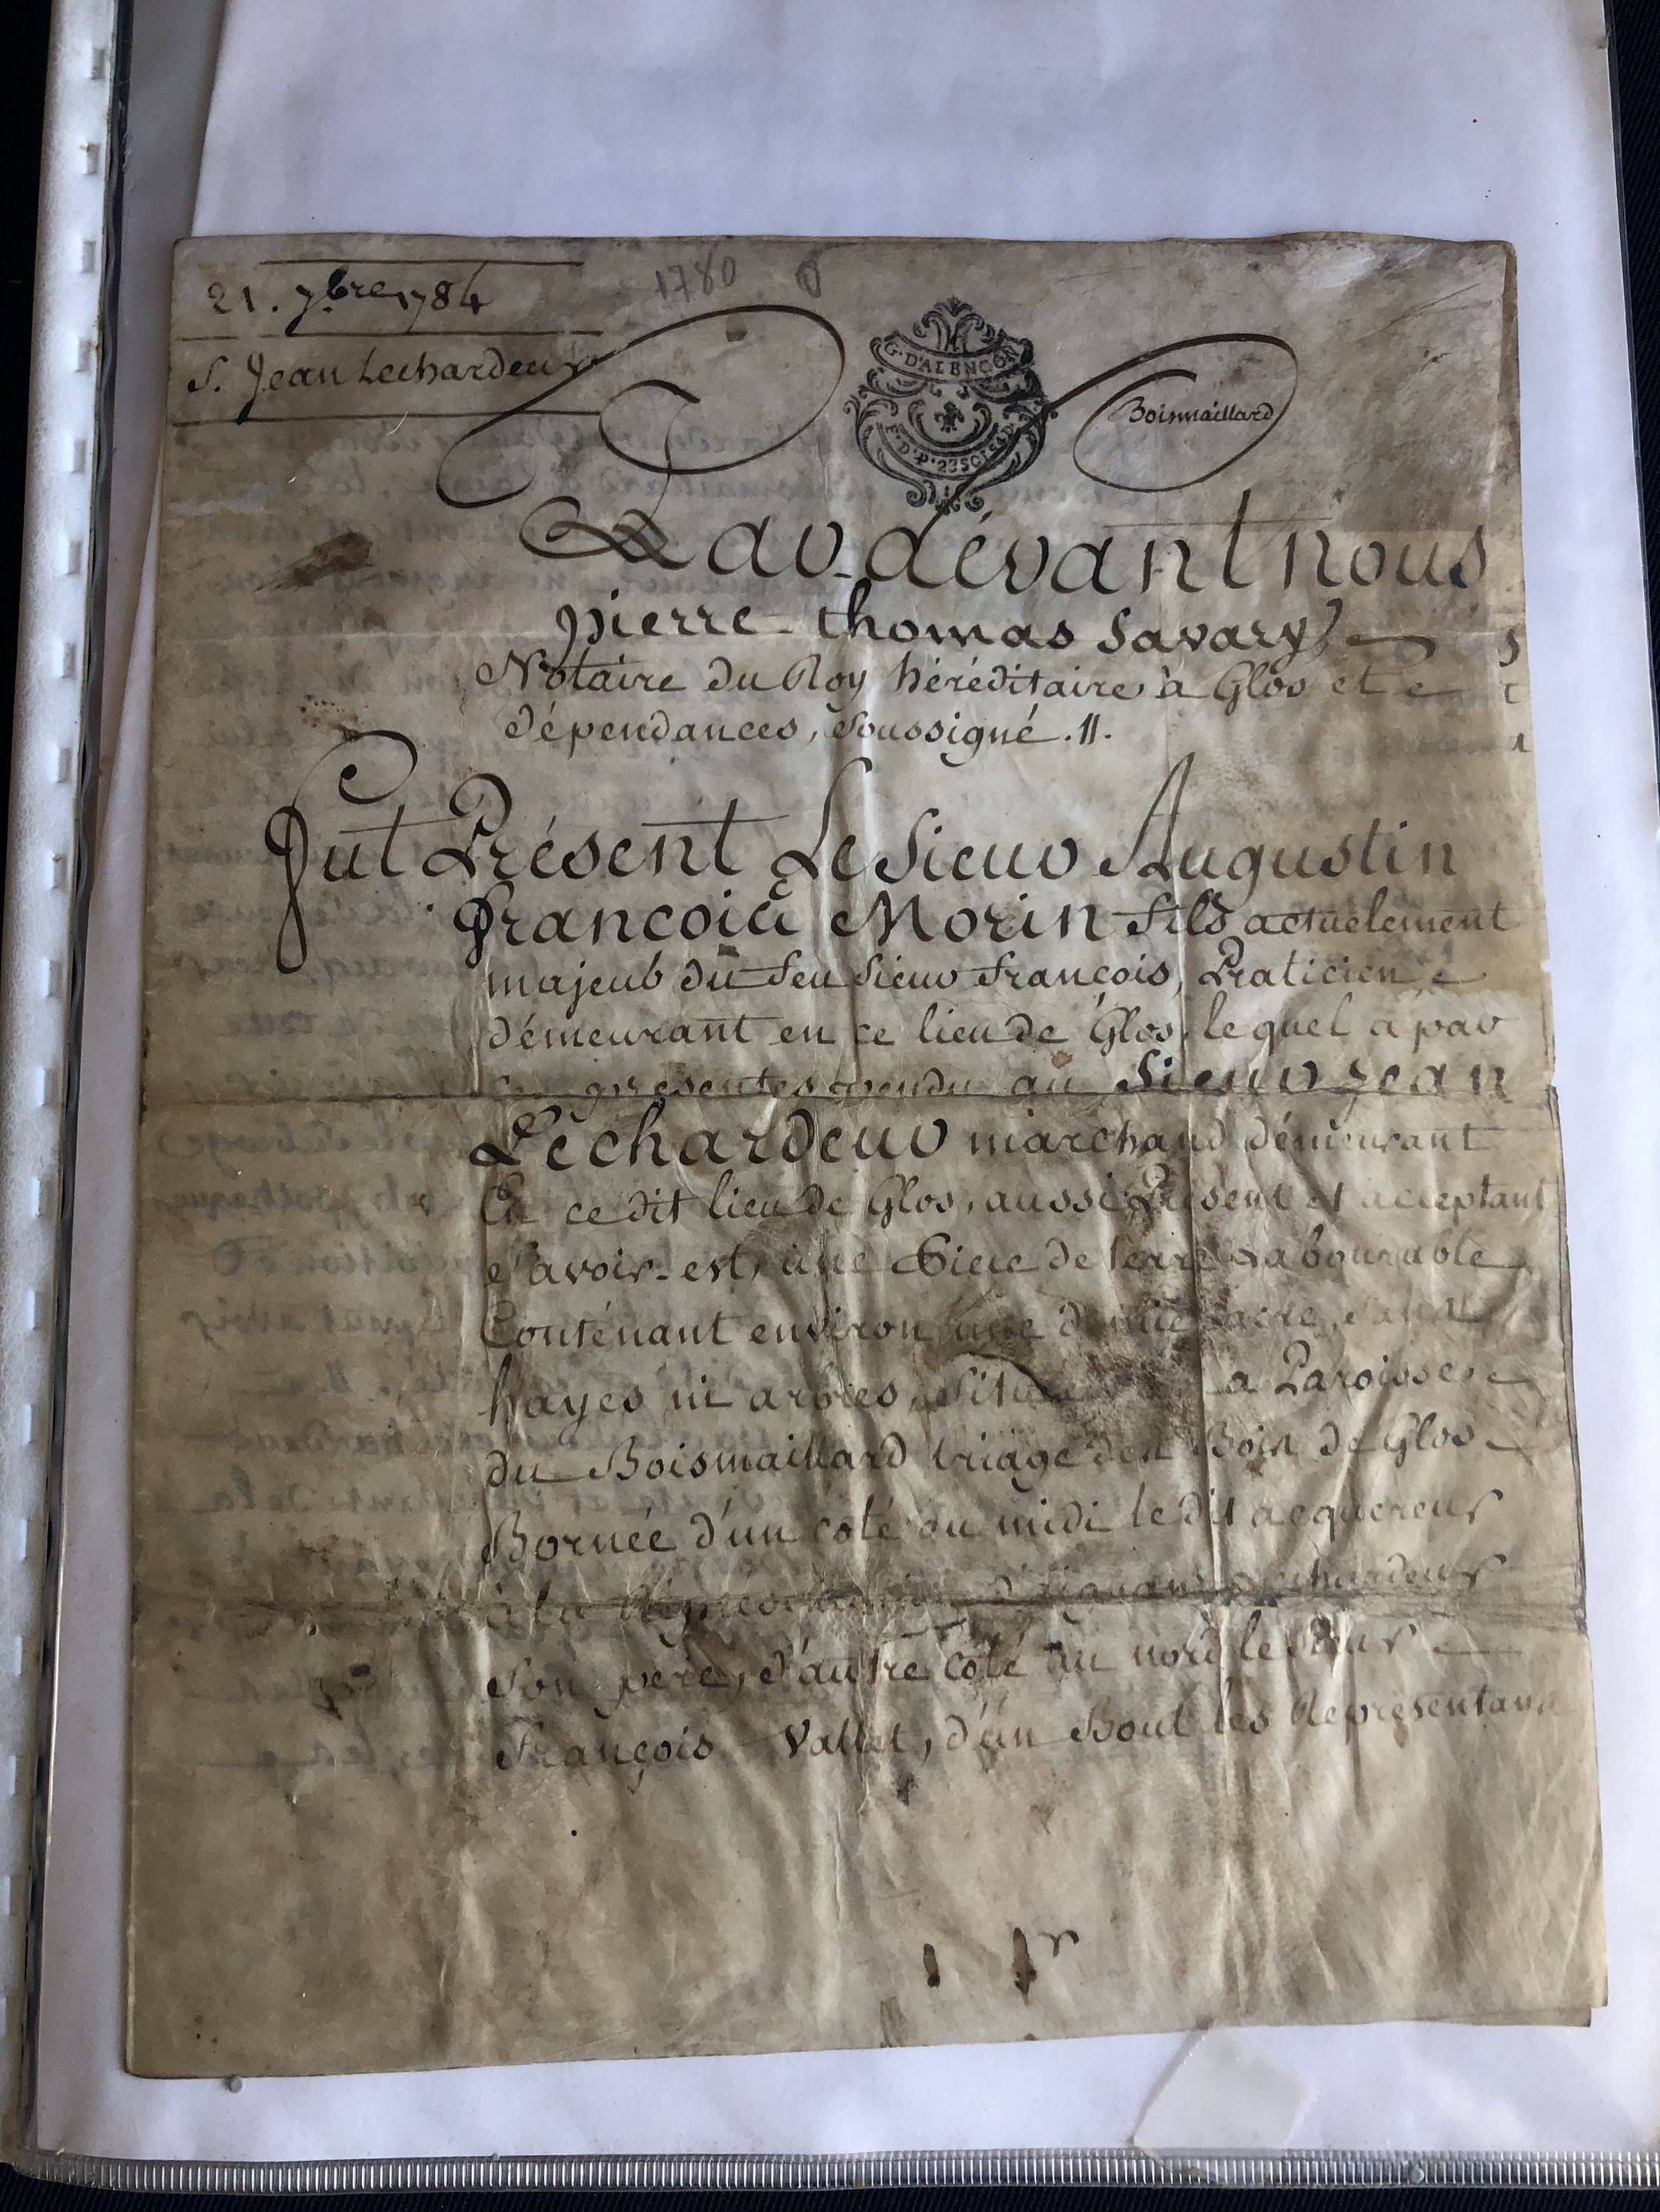 21. 7bre 1784
1780
S. Jean Lechardeur
G. D'ALENÇON
Boismaillard
Par dévant nous
pierre thomas Savary
Notaire du Roy héréditaire à Glos et
dépendances, soussigné .11.
Fut Présent Le Sieur Augustin
François Morin fils actuelement
majeur du feu Sieur françois, Praticien
démeurant en ce lieu de Glos, le quel a par
ces presentes vendu au Sieur Jean
Léchardeur marchand démeurant
En ce dit lieu de Glos, aussi Présent et acceptant
s'avoir-est, une Piece de terre Labourable
Contenant environ une demie acre, sans
hayes ni arbres, située a Paroisse
du Boismaillard triage des Bois de Glos
Bornée d'un coté au midi le dit acquereur
à la Représentation Lechardeur
son pere, d'autre coté au nord le Sieur
François Vallet, d'un Bout les Représentans